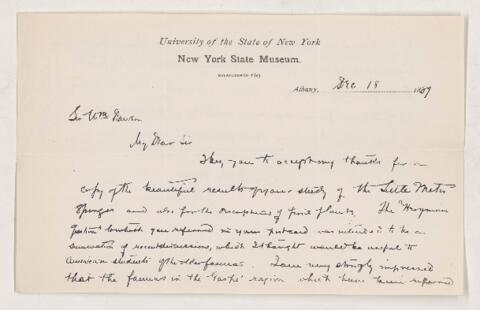 University of the State of New York
New York State Museum.
Albany, Dec 18 1889
Sir Wm Dawson
My Dear Sir
I beg you to accept my thanks for a
copy of the beautiful results of your study of the Little Metis
Sponges and also for the descriptions of fossil plants. The
to which you referred in your postcard was intended to be an
of recent discussions, which I thought would be useful to
American students of the older faunas. I am very strongly impressed
that the faunas in the Gaspé region which have been referred